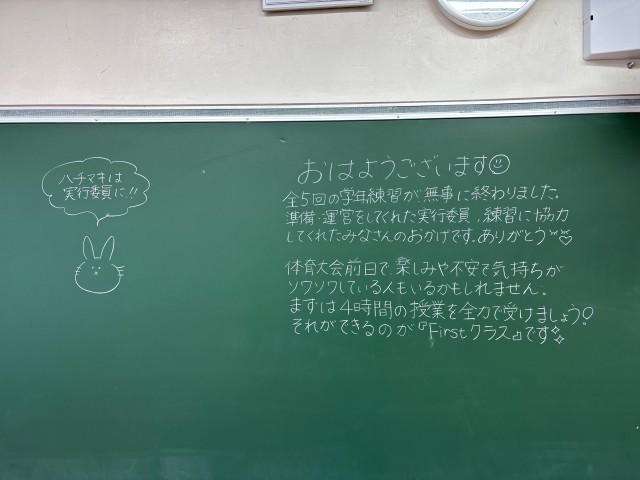 ハチマキは
実行委員に!!
おはようございます
全5回の学年練習が、無事に終わりました。
準備・運営をしてくれた実行委員、練習に協力
してくれたみなさんのおかげです。ありがとう
体育大会前日で、楽しみや不安で気持ちが
ソワソワしている人もいるかもしれません。
まずは4時間の授業を全力で受けましょう!
それができるのが『Firstクラス』です